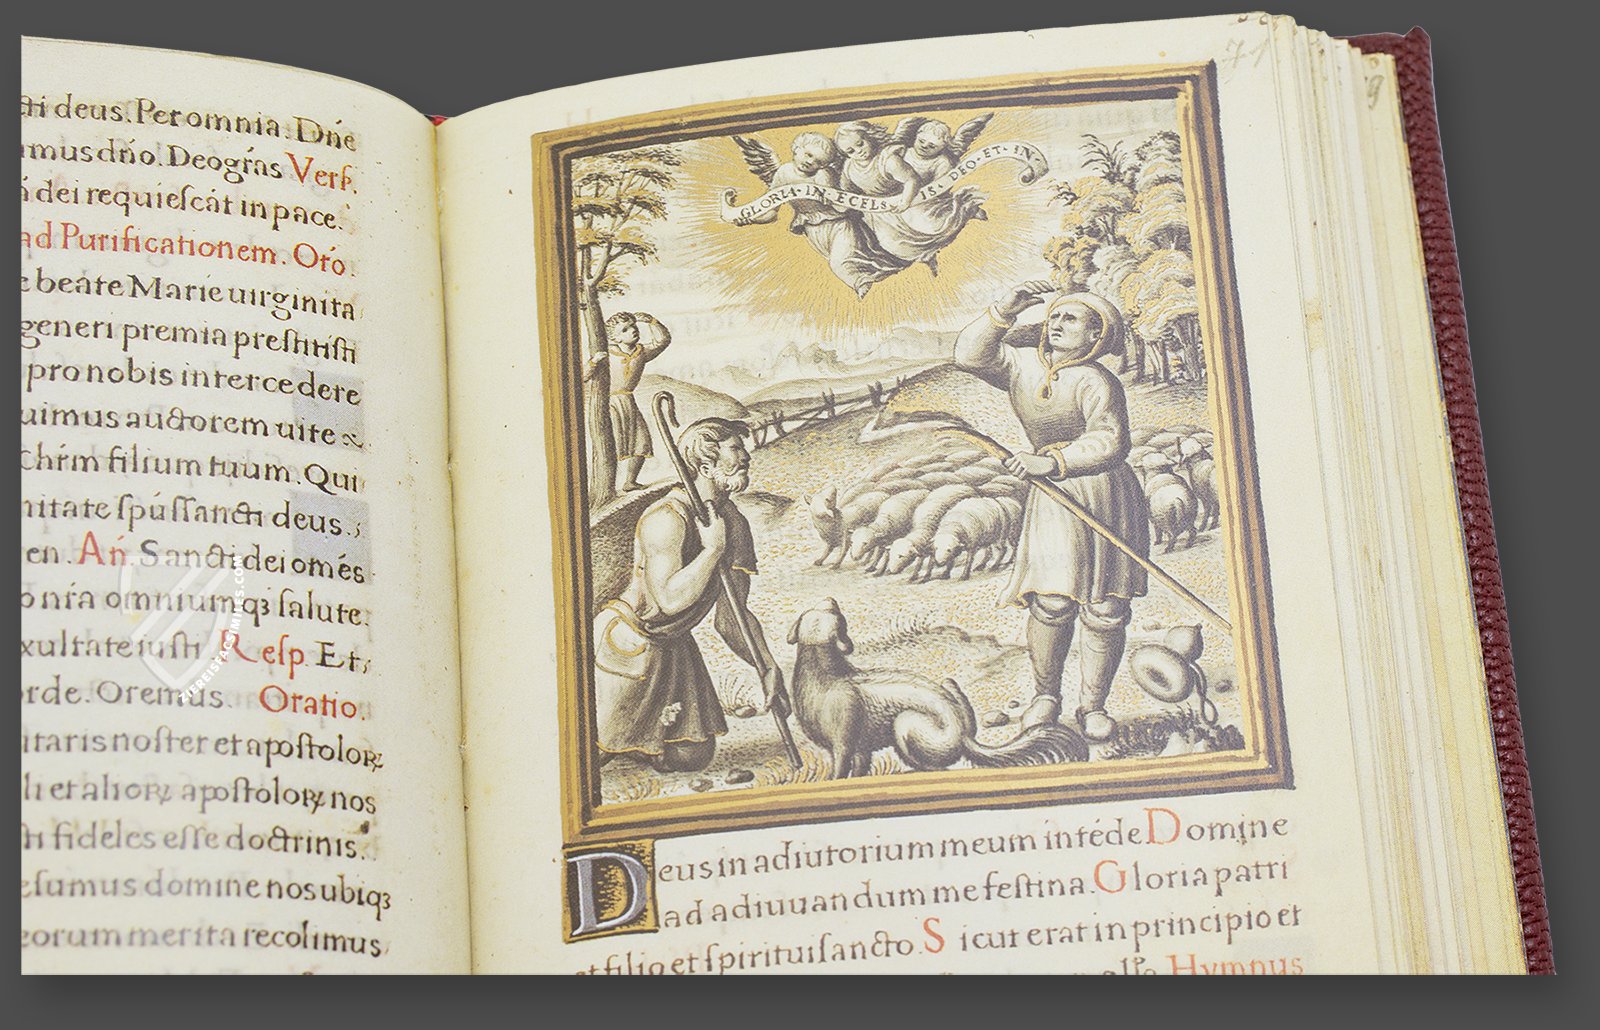 cti deus. Per omnia. Dńe
amus dńo. Deo gŕas Verſ.
dei requieſcát in pace.
ad Purificationem. Oŕo.
e beate Marie uirginita
generi premia preſtitiſti
pro nobis intercedere
uimus auctorem uite
Chrm filium tuum. Qui
nitate ſpúſſancti deus.
en. Añ. Sancti dei omés
nŕa omniumqꝫ ſalute.
xultate iuſti Reſp. Et
orde. Oremus. Oratio.
itaris noſter et apoſtoloꝝ
li et alioꝝ apoſtoloꝝ nos
ſti fideles eſſe doctrinis.
eſumus domine nos ubiqꝫ
eorum merita recolimus
ZIEREISFACSIMILES.COM
71
9
GLORIA·IN·ECELS IS·DEO·ET·IN
Deus in adiutorium meum inténde Domine
ad adiuuandum me feſtina. Gloria patri
et filio et ſpiritui ſancto. Sicut erat in principio et
Hymnus